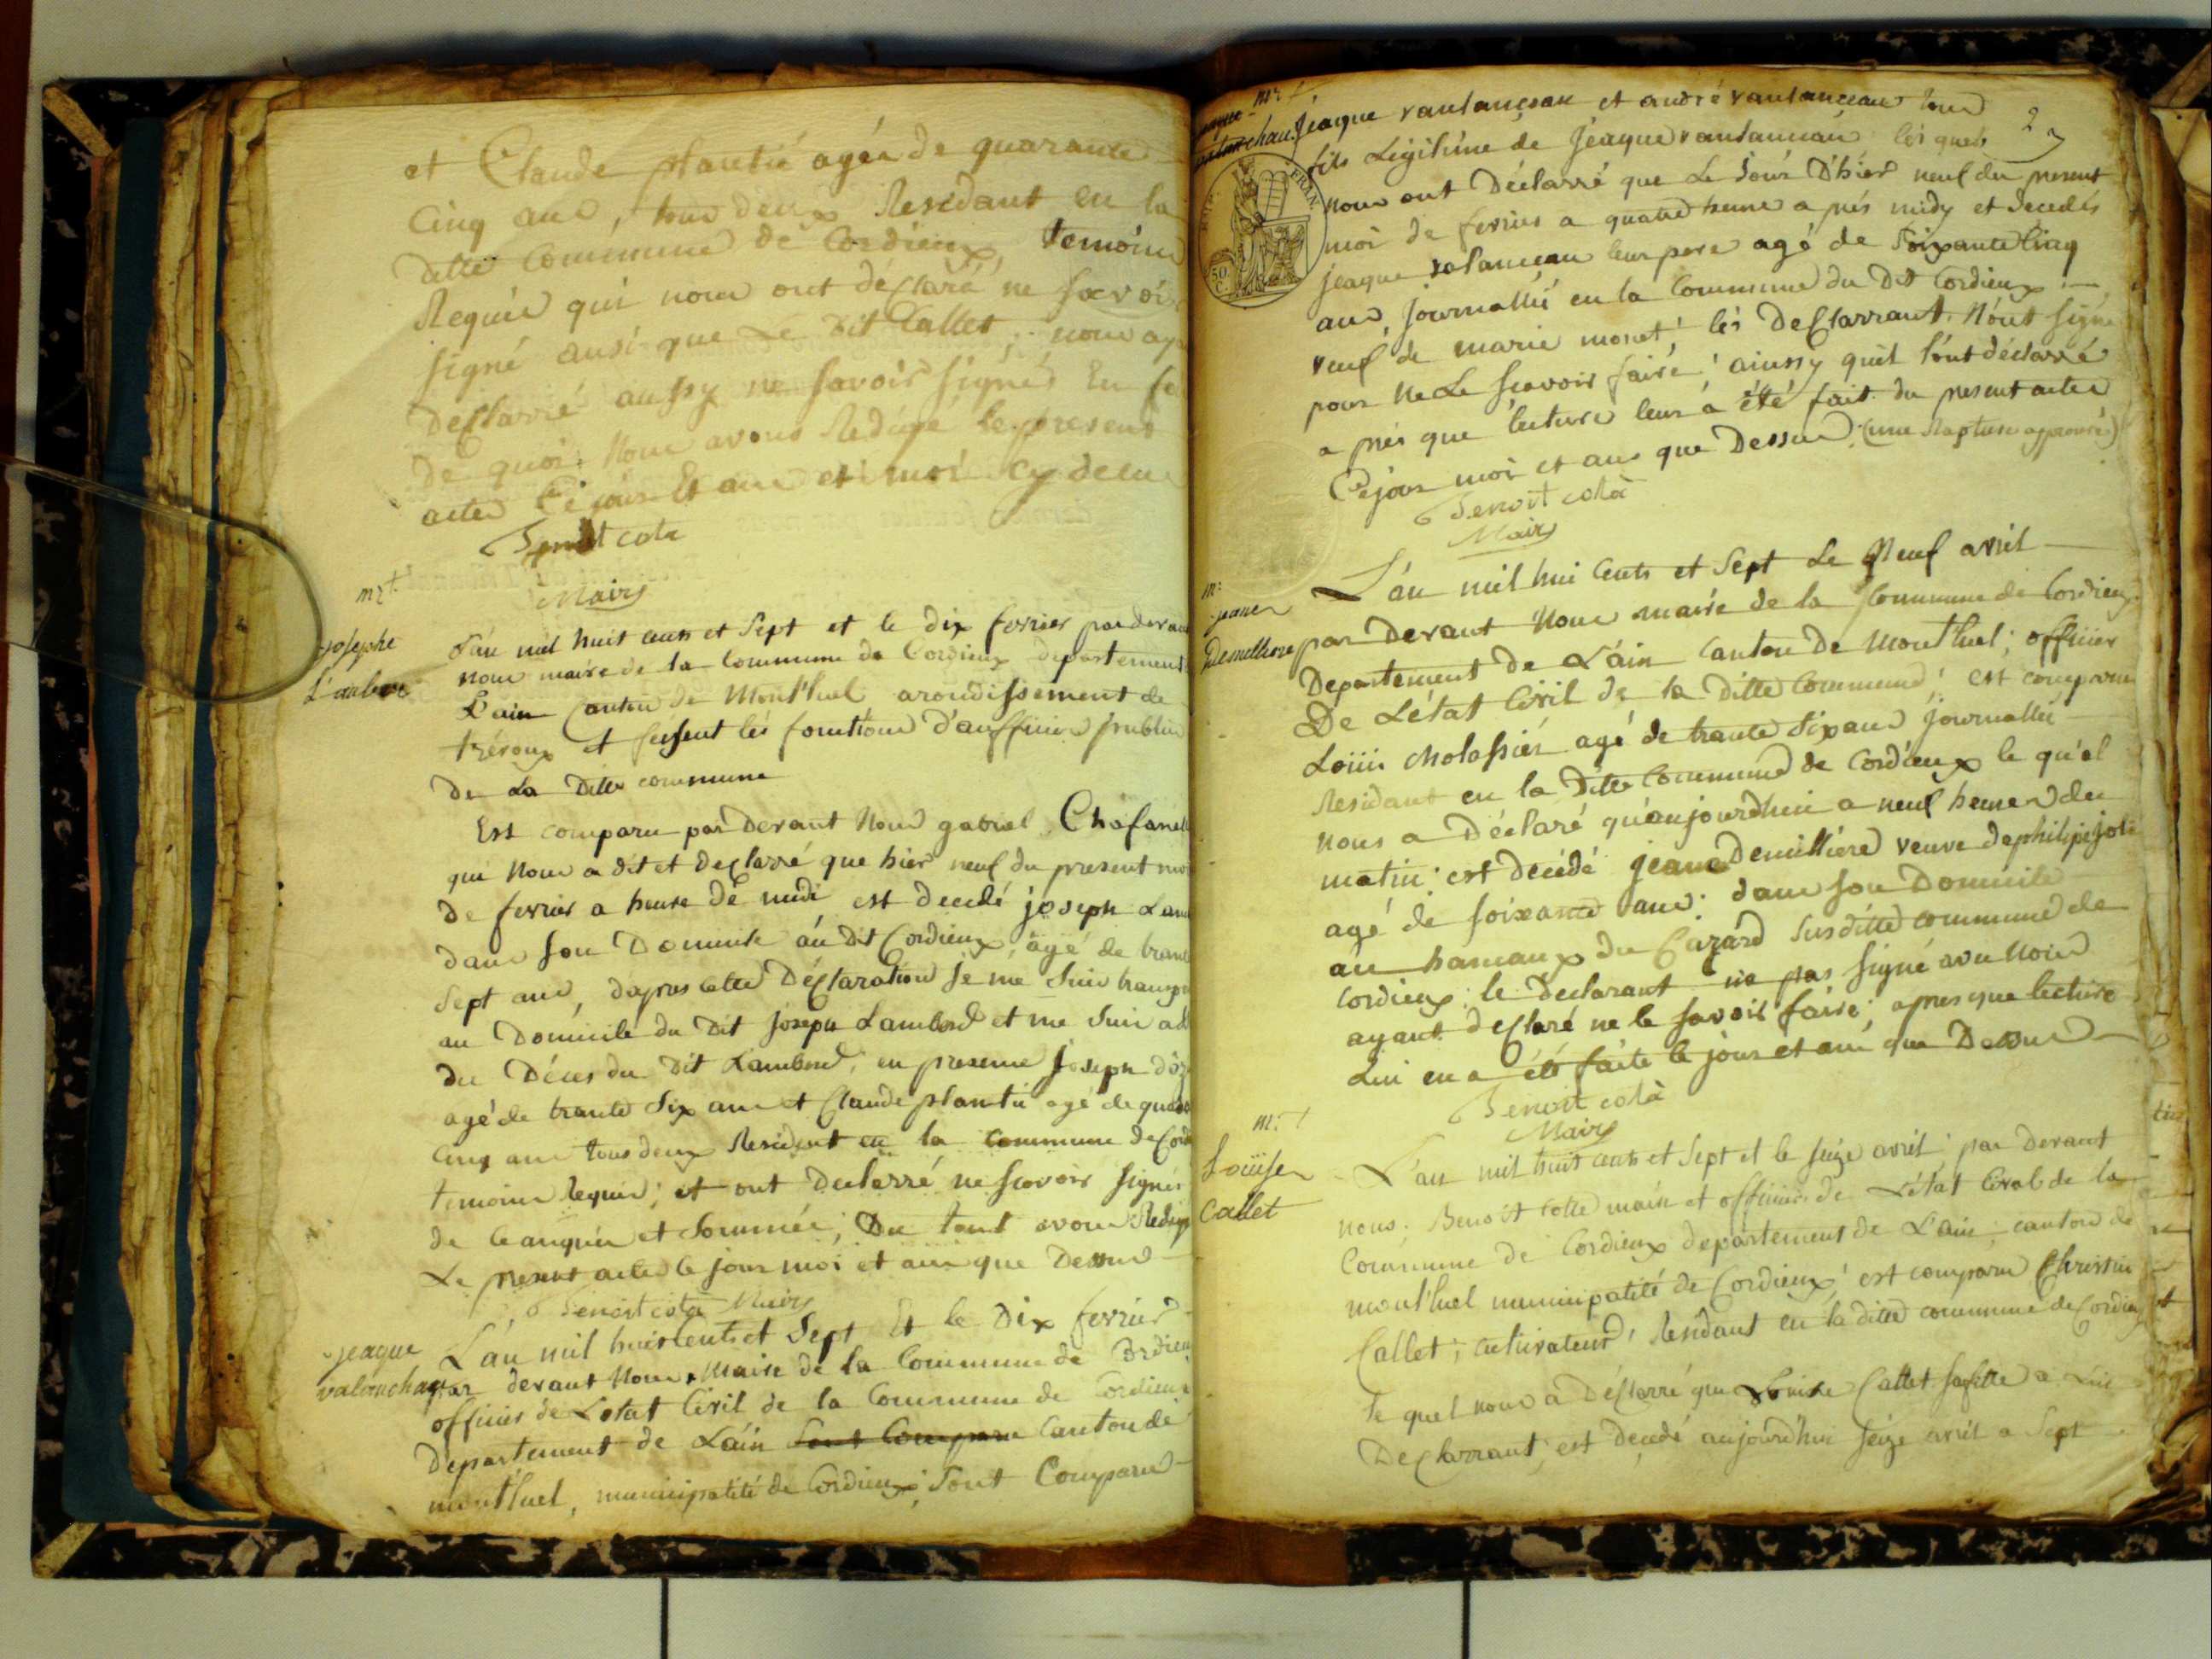 et Claude plantié agée de quarante
cinq ans, tous deux Residant en la
ditte Commune de Cordieux, temoins
Requis qui nous ont déclaré ne scavoir
signé ausi que Le dit Callet, nous
declarré aussy ne savoir signés En
de quoi Nous avons Redigé le present
actes Ce jour Et an et moi cy dessus
Benoit cola
Maire
mrt
josephe
Lambert
L'an mil huit cents et Sept et le dix fevrier par devant
nous maire de la Commune de Cordieux departement
L'ain Canton de Mont'luel arondissement de
trévoux et faisant les fonctions d'aufficier publiu
de La Ditte commune
Est comparu par Devant Nous gabriel Chafanel
qui Nous a dit et declarré que hier neuf du present
de fevrier a heure de midi est decedé joseph
dans son Domicile au Dit Cordieux, agé de
Sept ans, dapres cette Déclaration je me suis
au Domicile du Dit joseph Lambert et me suis
du Déces du Dit Lambert, en presence joseph
agé de trante Six ans et Claude plantié agé de
cinq ans tous deux Resident en la commune de
temoins requis; et ont Declarré ne scavoir signés
de ce enquis et Sommés; Du tout avons
Le present actes le jour moi et an que Dessus
Benoit cola Maire
jeaque
valanchau
L'an mil huit cents et Sept Et le Dix fevrier
par devant Nous, Maire de la Commune de Cordieux
officier de L'etat Civil de la Commune de Cordieux
Departement de L'ain sont Comparu Canton de
mont'luel, municipatité de Cordieux; Sont Comparus
mrt
2
Jeaque vaulanceau et andré vaulanceau tous
fils Légitime de Jeaque vaulanceau lesquels
nous ont Déclarré que Le jour D'hier neuf du present
moi de fevrier a quatre heure a prés midy et decedés
jeaque valanceau leur pere agé de soixante Cinq
ans, journallié en la Commune du Dit Cordieux
veuf de marie moret; lés Declarrant N'ont signé
pour Ne Le scavoir fairé; ainssy quil l'ont déclarré
a prés que lecture leur a été fait du present actes
Ce jour moi et ans que Dessus (une Rapture approuvé)
Benoit cola
Maire
mt
jeane
Demelliere
L'an mil hui Cents et Sept Le Neuf avril
par Devant Nous maire de la Commune de Cordieux
Departement de L'ain Canton De Mont'luel; officier
De L'état Civil de la Ditte Commune; est comparu
Louis cholassier agé de trante Six ans journallié
Residant en la Ditte Commune de Cordieux le quel
nous a Déclaré qu'aujourd'hui a neuf heures du
matin; est décédé jeane Demilliére veuve de philipe joli
agé de soixante ans; dans son Domicile
au hameaux du Cazard susditte commune de
Cordieux; le declarant na pas signé avec Nous
ayant declaré ne le savoir fairé; apres que lecture
Lui en a été faite le jour et ans que Dessus
Benoit cola
Maire
mt
Loüise
Callet
L'an mil huit cents et Sept et le seize avril par Devant
nous. Benoit Colle maire et officier de L'état Civil de la
Commune de Cordieux departement de L'ain; canton de
mont'luel municipatité de Cordieux; est comparu Chrissin
Callet, cultivateur, Residant en la ditte commune de Cordieux
le quel nous a Déclarré que Louise Callet sa fille a Lui
Declarrant, est decedé aujourd'hui seize avril a Sept